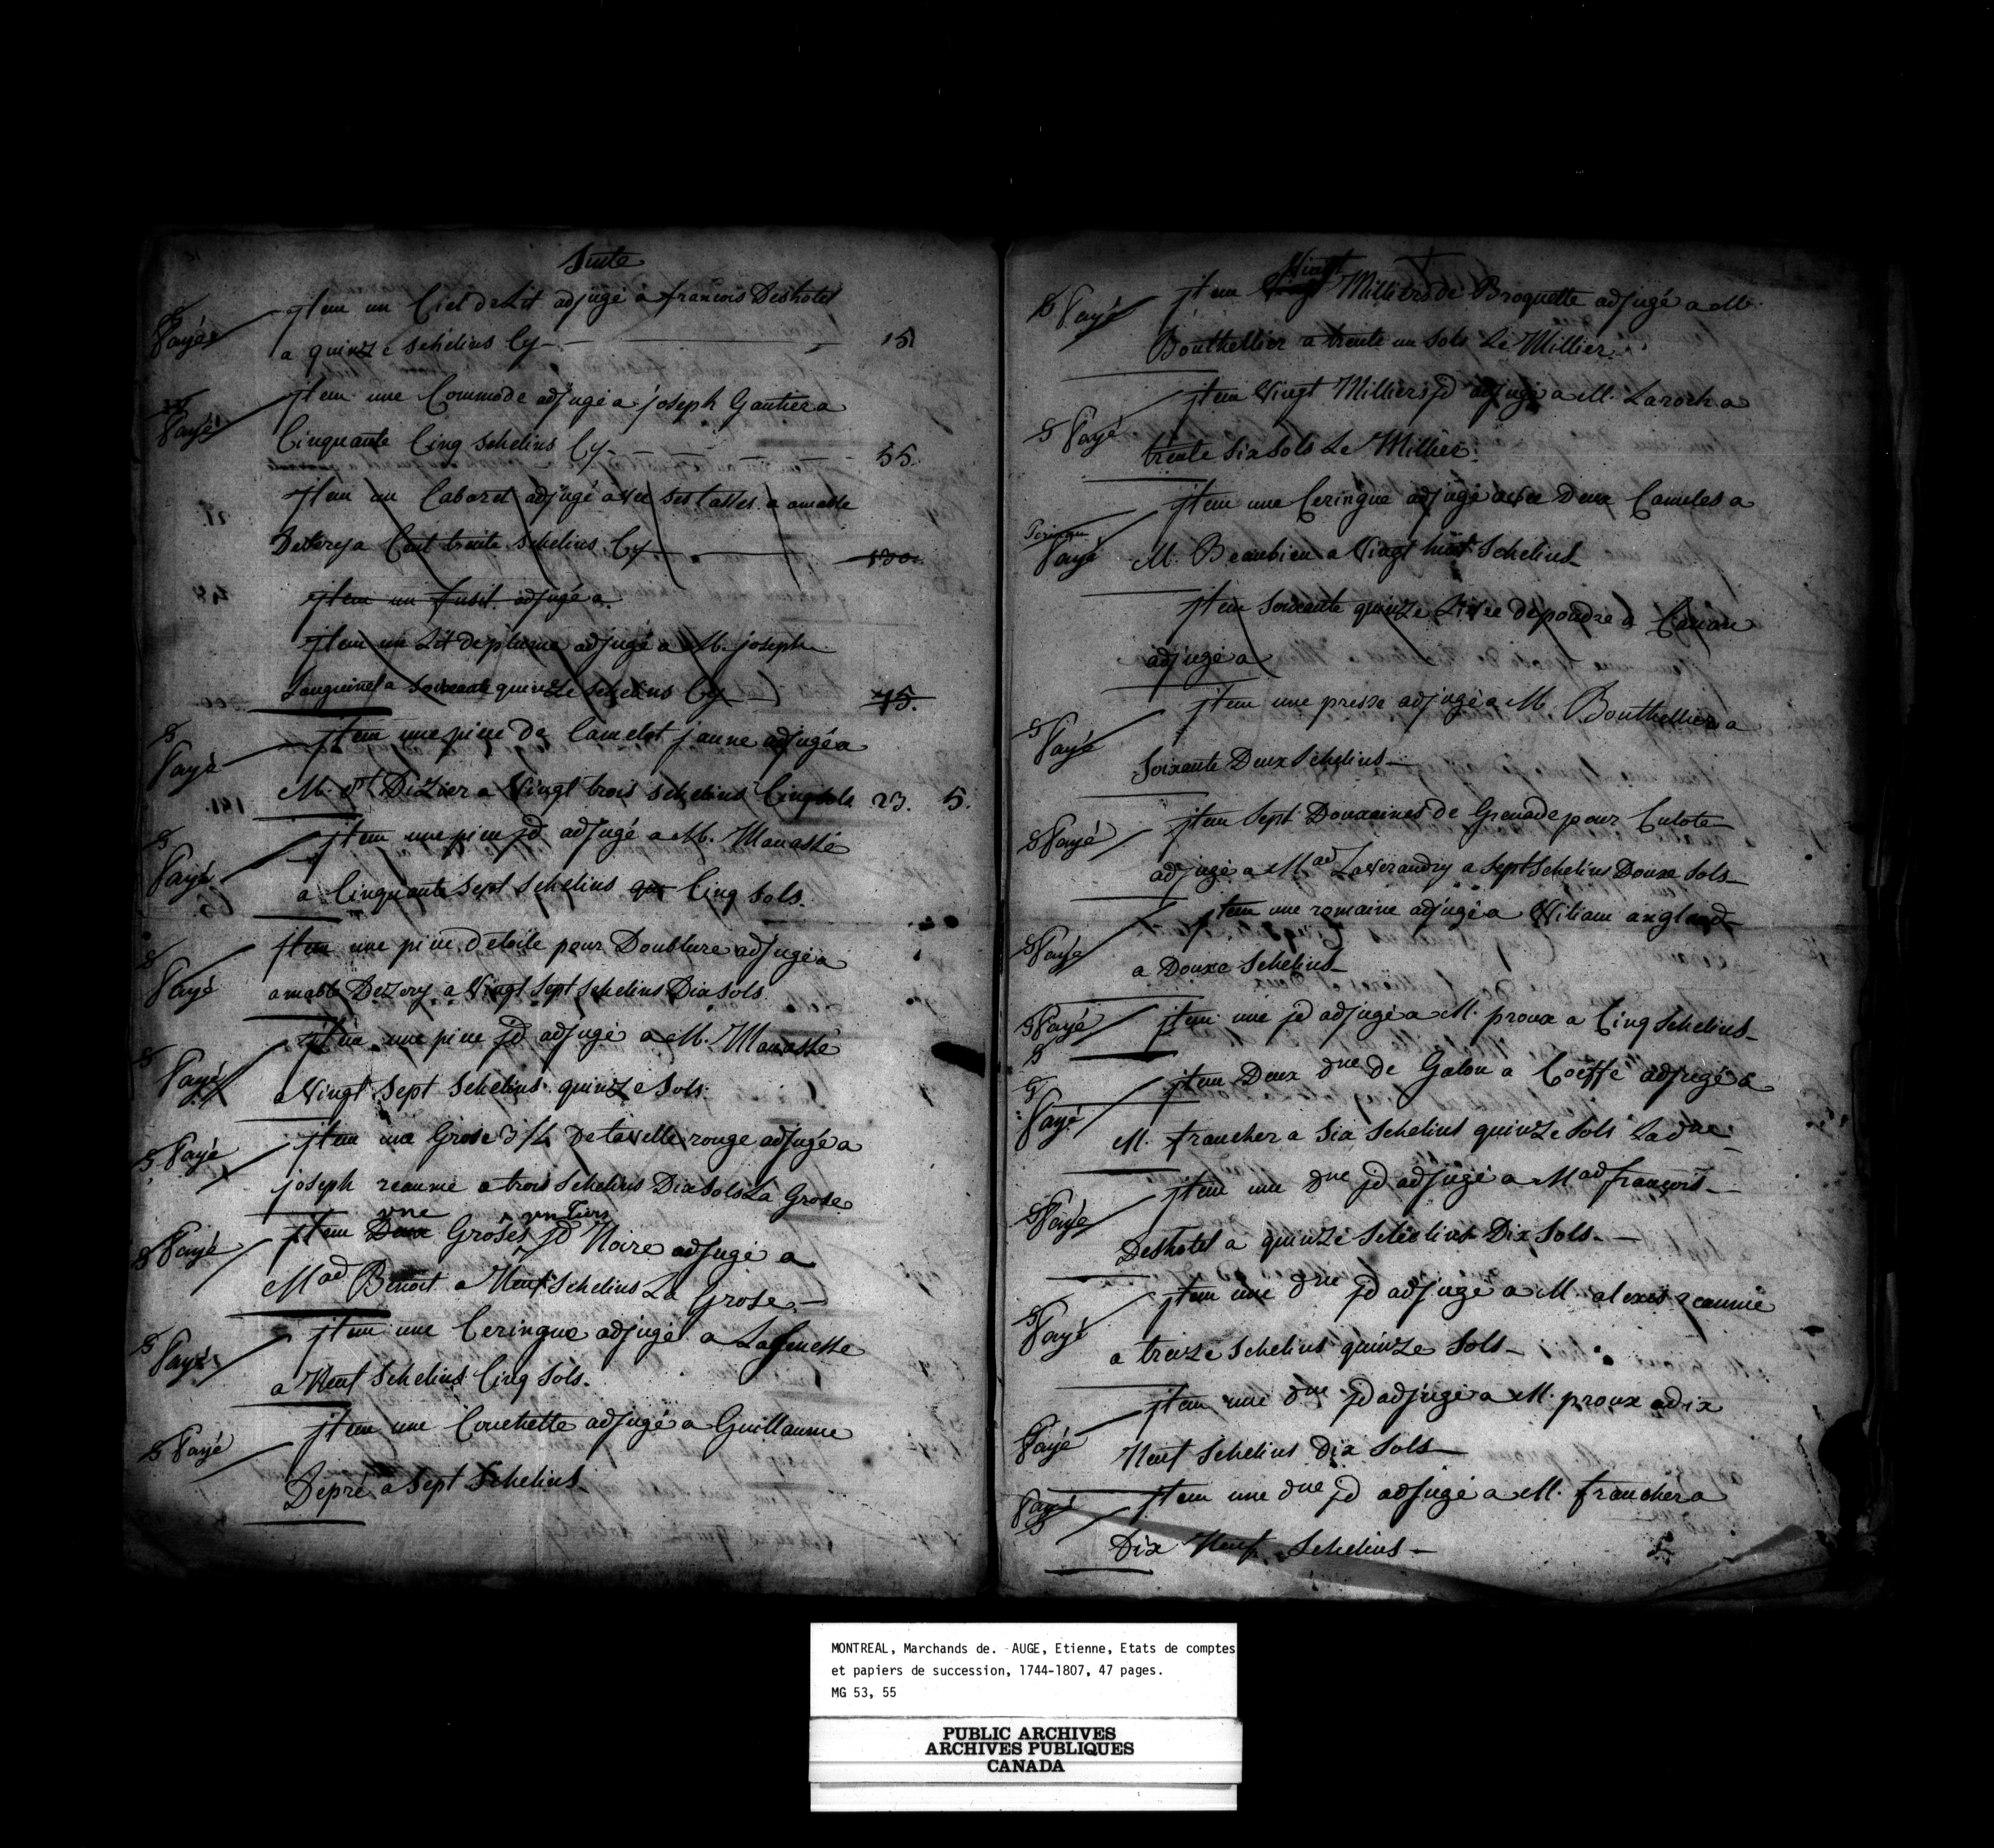 Suite
Payé jtem un Ciel de Lit adjugé a francois Deshotel
a quinze schelins Cy — 15
Payé jtem une Commode adjugé a joseph Gautier a
Cinquante Cinq schelins Cy - - - - - 55.
jtem un Cabaret adjugé avec ses tasses a amable
Dezery a Cent trente schelins Cy — 130.
jtem un fusil adjugé a
jtem un Lit de plume adjugé a M. joseph
Languinet a Soixante quinze schelins Cy — 75.
Payé jtem une piece de Camelot jaune adjugé a
M. St Dizier a Vingt trois schelins Cinq sols 23. 5.
Payé jtem une piece jd adjugé a M. Manassé
a Cinquante Sept schelins Cinq sols.
Payé jtem une piece detoile pour Doublure adjugé a
amable Dezery a Vingt Sept schelins Dix sols
Payé jtem une piece jd adjugé a M. Manassé
a Vingt Sept Schelins quinze Sols.
Payé jtem une Grose 3/4 De tavelle rouge adjugé a
joseph reaume a trois schelins Dix sols La Grose
une un tiers
Payé jtem Deux Groses jd Noire adjugé a
Mad Benoit a Neuf Schelins La Grose —
Payé jtem une Ceringue adjugé a Lajeunesse
a Neuf Schelins Cinq Sols.
Payé jtem une Couchette adjugé a Guillaume
Depré a Sept Schelins
Vingt
Payé jtem Milliers de Broquette adjugé a M.
Bouthellier a trente un Sols Le Millier.
Payé jtem Vingt Milliers jd adjugé a M. Laroch a
trente Six Sols Le Millier.
jtem une Ceringue adjugé avec Deux Canules a
Payé M. Beaubien a Vingt huit Schelins
jtem Soixante quinze Livre de poudre a Canon
adjugé a
Payé jtem une presse adjugé a M Bouthellier a
Soixante Deux Schelins —
Payé jtem Sept Douxaines de Grenade pour Culote
adjugé a Mad Laverandry a Sept Schelins Douxe Sols —
Payé jtem une romaine adjugé a Viliam angland
a Douxe Schelins —
Payé jtem une jd adjugé a M. proux a Cinq Schelins —
Payé jtem Deux dne de Galon a Coeffe adjugé a
M. francher a Six Schelins quinze Sols La dne
Payé jtem une dne jd adjugé a Mad francois —
Deshotel a quinze Schelins Dix Sols. —
Payé jtem une dne jd adjugé a M alexis reaume
a treize Schelins quinze Sols —
Payé jtem une dne jd adjugé a M. proux a dix
Neuf Schelins Dix Sols —
Payé jtem une dne jd adjugé a M. francher a
Dix Neuf Schelins —
MONTREAL, Marchands de. - AUGE, Etienne, Etats de comptes
et papiers de succession, 1744-1807, 47 pages.
MG 53, 55
PUBLIC ARCHIVES
ARCHIVES PUBLIQUES
CANADA